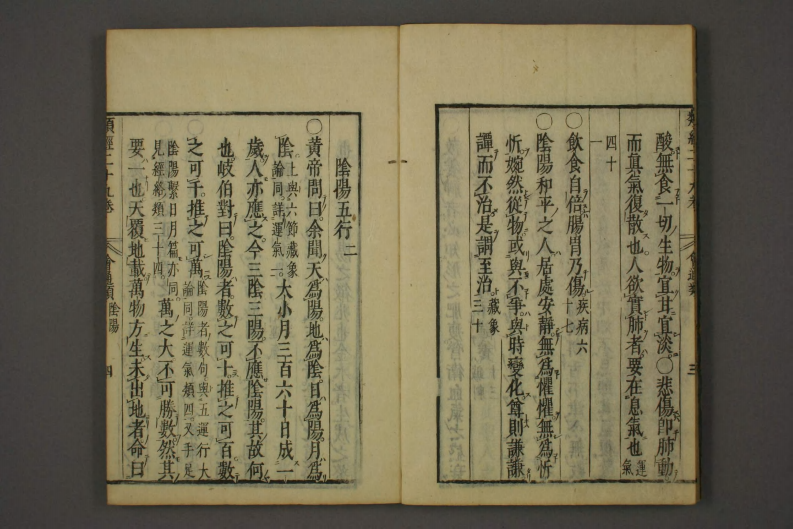 類經二十九卷
會通類
三
酸無食一切生物宜甘宜淡〇悲傷即肺動
而真氣復散也人欲實肺者要在息氣也運氣
四十一
飲食自倍腸胃乃傷疾病六十七
〇陰陽和平之人居處安靜無為懼懼無為忻
忻婉然從物或與不爭與時變化尊則謙謙
譚而不治是謂至治藏象三十
陰陽五行二
〇黃帝問曰余聞天為陽地為陰日為陽月為
陰上與六節藏象論同詳運氣一大小月三百六十日成一
歲人亦應之今三陰三陽不應陰陽其故何
也岐伯對曰陰陽者數之可十推之可百數
之可千推之可萬陰陽者數句與五運行大論同詳運氣類四又手足
陰陽繫日月篇亦同見經絡類三十四萬之大不可勝數然其
要一也天覆地載萬物方生未出地者命曰
類經二十九卷
會通類 陰陽
四